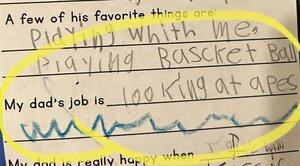 A few of his favorite things are:
Playing whith me,
Playing Bascket Ball
My dad's job is looking at apes
My dad is really happy when